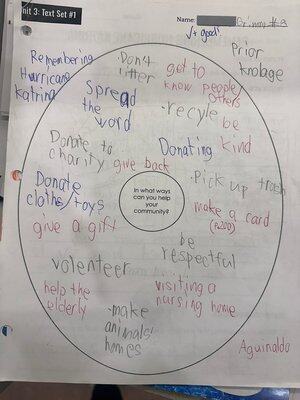 nit 3: Text Set #1
Name:
√+ good!
Prior
knolage
Remembering
Hurricane
Katrina
Don't
litter
get to
know people/
others
spread
the
word
recyle
be
kind
Donate to
charity
give back
Donating
Pick up trash
Donate
cloths/toys
In what ways
can you help
your
community?
make a card
(p200)
give a gift
be
respectful
volenteer
visiting a
nursing home
help the
elderly
make
animals'
homes
Aguinaldo